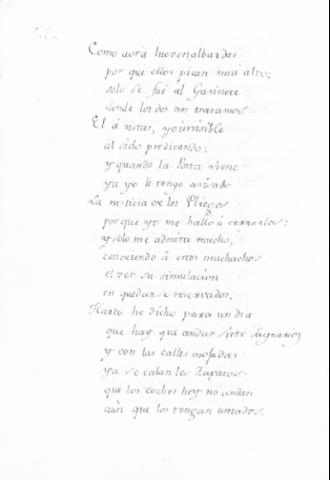 Como aora
por que ellos pican mui alto;
solo se fui al Gavinete
donde los dos nos tratamos
El á vistas, yo invisible
al oido predicando;
y quando la Posta viene
ya yo le tengo avisado
La noticia de los Pliegos
porque yo me hallo á cerrarlos:
y solo me admira mucho,
conociendo á estos muchachos
el ver su simulacion
en quedarse reservados.
Harto he dicho para un dia
que hay que andar siete Sagrarios
y con las calles mojadas
ya se calan los Zapatos
que los coches hoy no andan
aun que los tengan untados.